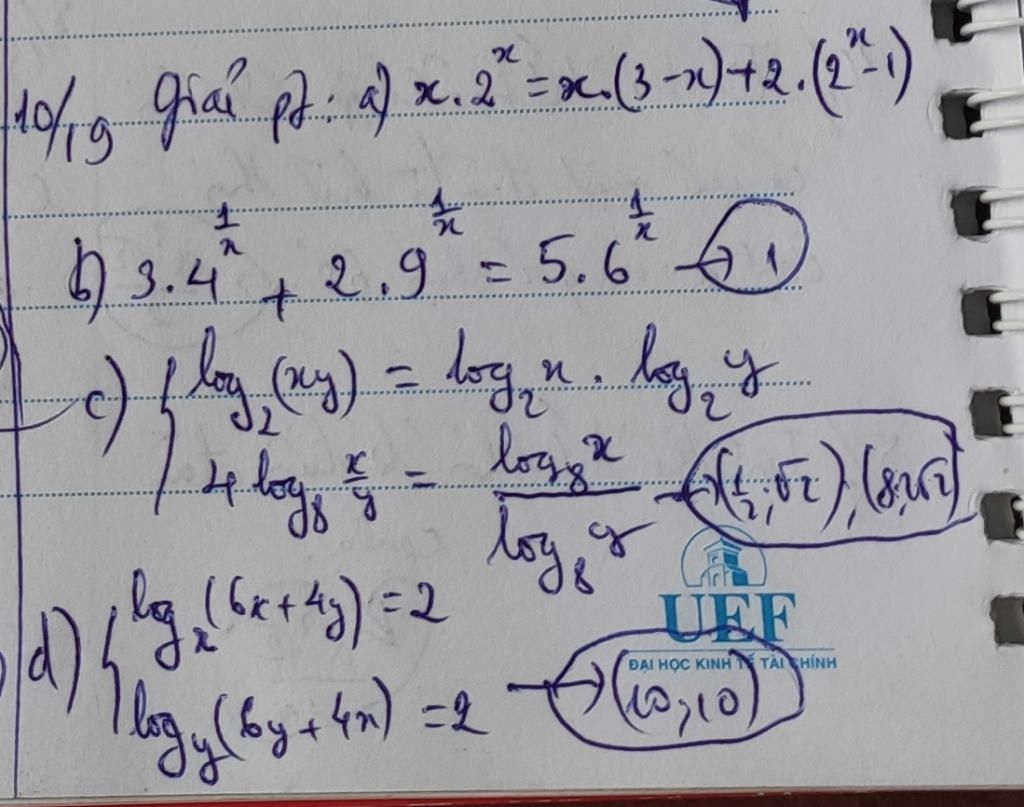 10/19 Giải pt: a) x.2^x = x.(3-x)+2.(2^x-1)
b) 3.4^{1/x} + 2.9^{1/x} = 5.6^{1/x} → 1
c) { log_2(xy) = log_2 x . log_2 y
4 log_8 x/y = log_8 x / log_8 y → (1/2; √2), (8; 2√2)
d) { log_x(6x+4y) = 2
log_y(6y+4x) = 2 → (10,10)
UEF
ĐẠI HỌC KINH TẾ TÀI CHÍNH